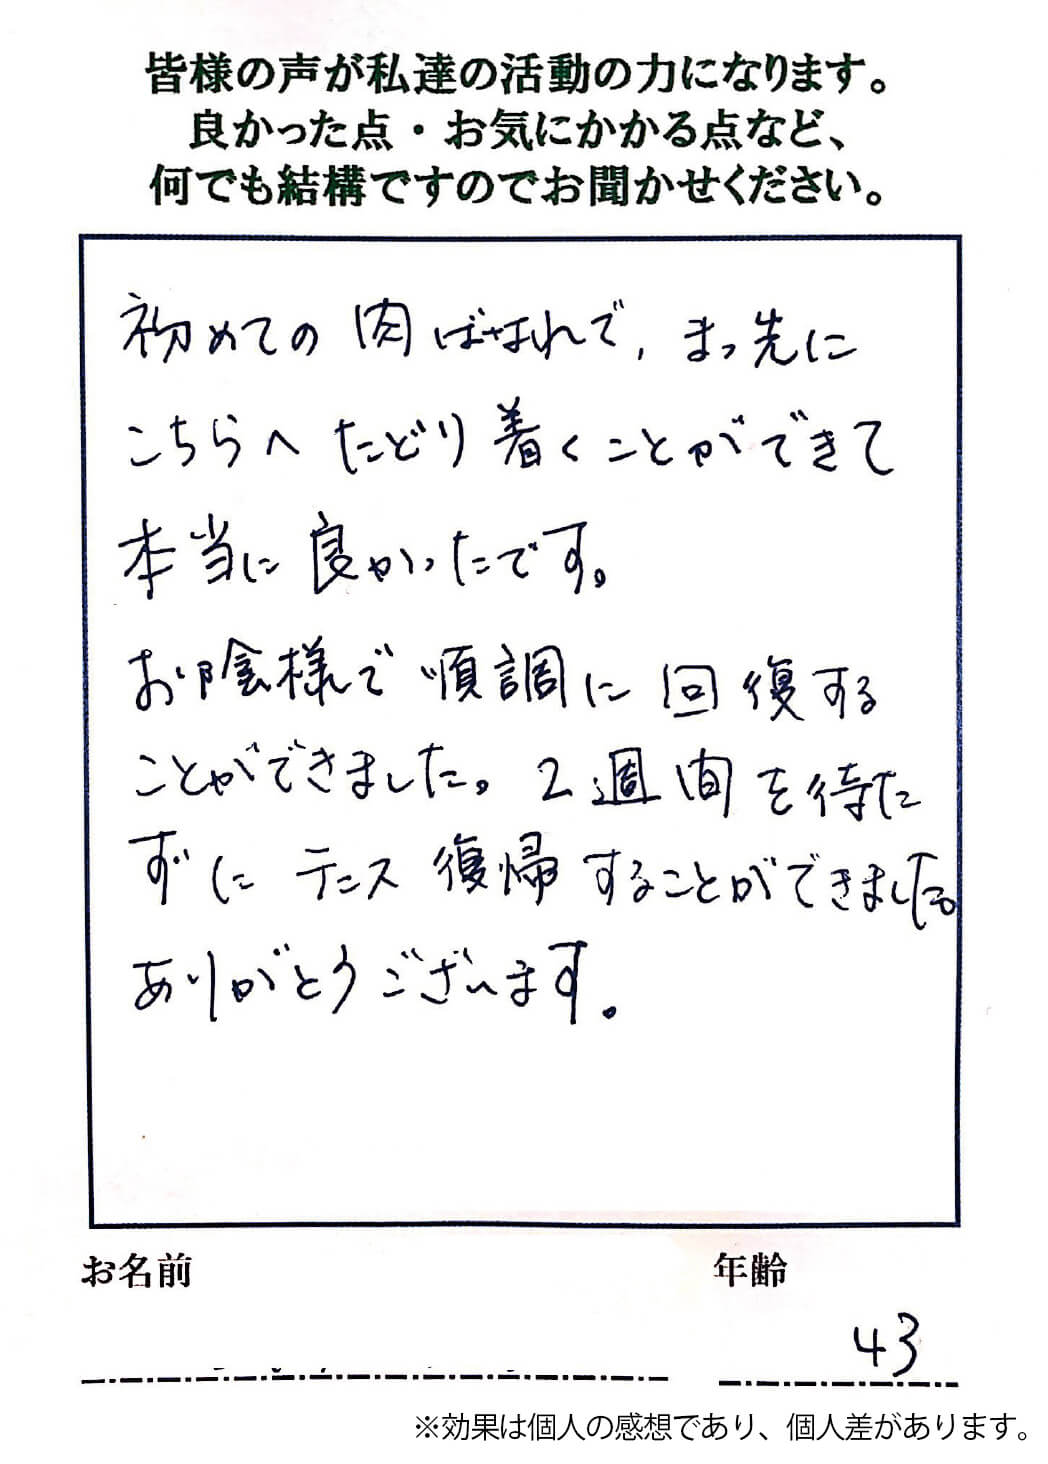 皆様の声が私達の活動の力になります。
良かった点・お気にかかる点など、
何でも結構ですのでお聞かせください。
初めての肉ばなれで、まっ先に
こちらへたどり着くことができて
本当に良かったです。
お陰様で順調に回復する
ことができました。2週間を待た
ずにテニス復帰することができました。
ありがとうございます。
お名前
年齢
43
※効果は個人の感想であり、個人差があります。